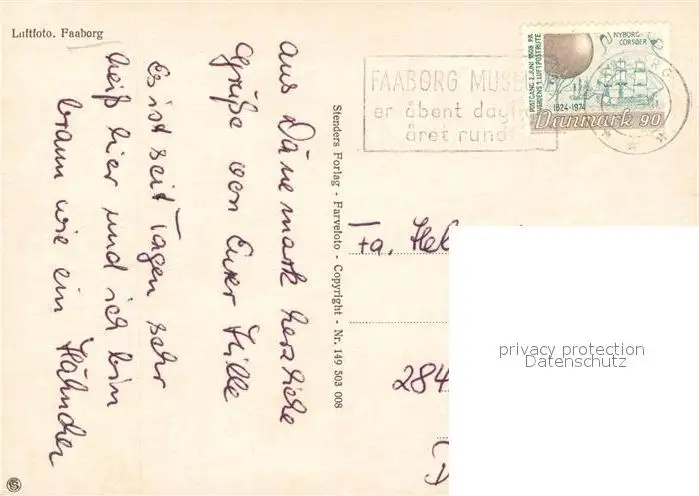 Luftfoto. Faaborg
aus Dänemark herzliche
Grüße von Eurer Hille
Es ist seit Tagen sehr
heiß hier und ich bin
braun wie ein Hähnchen
Stenders Forlag - Farvefoto - Copyright - Nr. 149 503 008
FAABORG MUSE
er åbent daglig
året rundt
POSTGANG 2. JUNI 1808 PR.
VERDENS 1. LUFTPOSTRUTE
NYBORG-
CORSØER
1624-1974
Danmark 90
Fa. Hel
284
D
privacy protection
Datenschutz